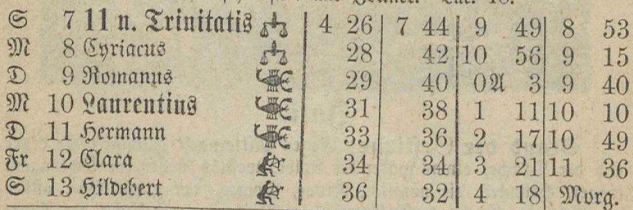 S 7 11 n. Trinitatis 4 26 7 44 9 49 8 53
M 8 Cyriacus 28 42 10 56 9 15
D 9 Romanus 29 40 0A 3 9 40
M 10 Laurentius 31 38 1 11 10 10
D 11 Hermann 33 36 2 17 10 49
Fr 12 Clara 34 34 3 21 11 36
S 13 Hildebert 36 32 4 18 Morg.